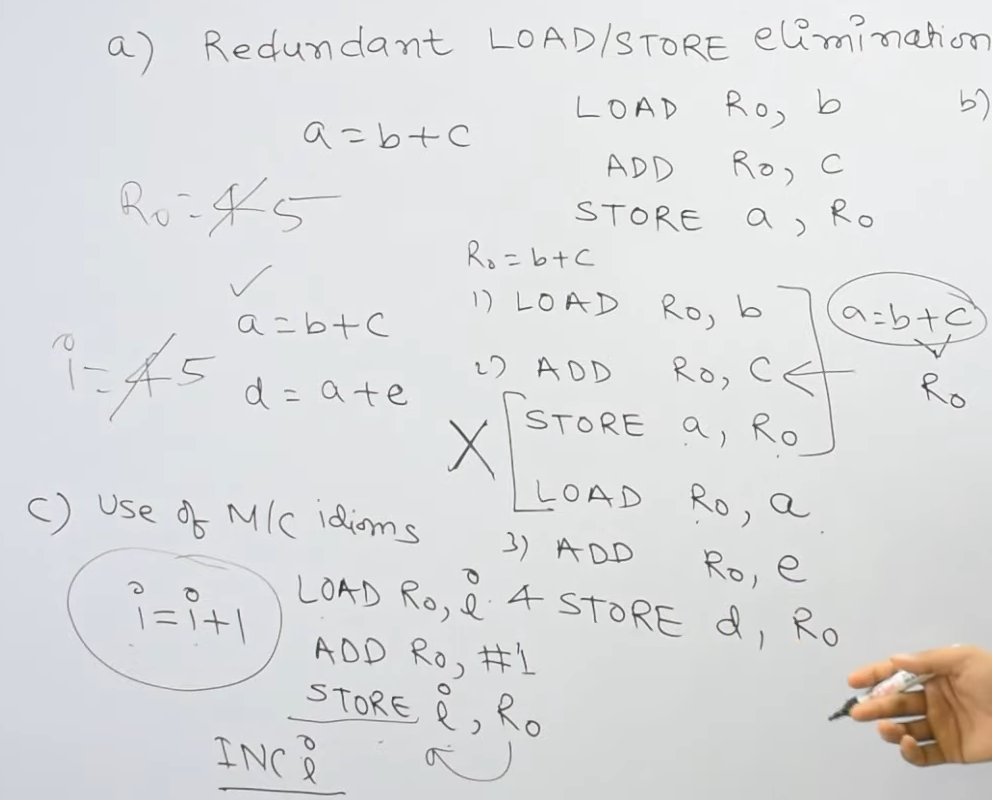 a) Redundant LOAD/STORE elimination
b)
a = b + c
R0 = 4 5
LOAD R0, b
ADD R0, C
STORE a, R0
a = b + c
d = a + e
i = 4 5
R0 = b + c
1) LOAD R0, b
2) ADD R0, C
STORE a, R0
X
LOAD R0, a
3) ADD R0, e
4 STORE d, R0
a = b + c
R0
c) Use of M/C idioms
i = i + 1
LOAD R0, i
ADD R0, #1
STORE i, R0
INC i